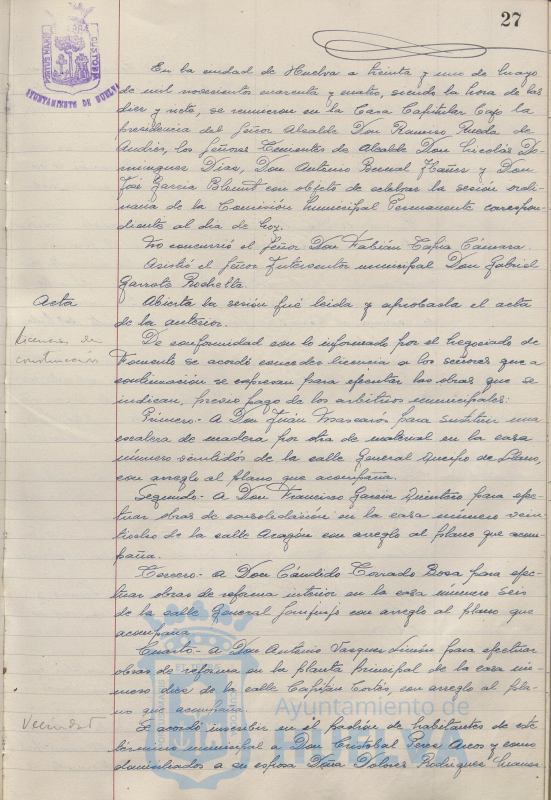 27
PORTUS MARIS
CUSTODIA
AYUNTAMIENTO DE HUELVA
En la ciudad de Huelva a treinta y uno de mayo
de mil novecientos cuarenta y cuatro, siendo la hora de las
diez y nete, se reunieron en la Casa Capitular bajo la
presidencia del Señor Alcalde Don Ramiro Rueda de
Andrés, los Señores Tenientes de Alcalde Don Nicolás Do-
minguez Dias, Don Antonio Bernal Ibañez y Don
José Garcia con objeto de celebrar la sesión ordi-
naria de la Comisión Municipal Permanente correspon-
diente al dia de hoy.
No concurrió el Señor Don Fabián Tapia Cámara.
Asistió el Señor Interventor municipal Don Gabriel
Garrote
Acta
Abierta la sesión fué leida y aprobada el acta
de la anterior.
Licencias de
construcción
De conformidad con lo informado por el Negociado de
Fomento se acordó conceder licencia a los señores que a
continuación se expresan para ejecutar las obras que se
indican, previo pago de los arbitrios municipales:
Primero.- A Don Juán Mascarós para sustituir una
escalera de madera por otra de material en la casa
número veintidós de la calle General Queipo de Llano,
con arreglo al plano que acompaña.
Segundo.- A Don Francisco Garcia Quintero para efec-
tuar obras de consolidación en la casa número vein
tiocho de la calle Aragón con arreglo al plano que acom-
paña.
Tercero.- A Don Cándido Corrado Rosa para efec-
tuar obras de reforma interior en la casa número seis
de la calle General Sanjurjo con arreglo al plano que
acompaña.
Cuarto.- A Don Antonio Vazquez Limón para efectuar
obras de reforma en la planta principal de la casa nú-
mero diez de la calle Capitán Cortés, con arreglo al pla-
no que acompaña.
Vecindad
Se acordó inscribir en el padrón de habitantes de este
término municipal a Don Cristobal Perez Arcos y como
domiciliados a su esposa Doña Dolores Rodriguez Suarez
Ayuntamiento de
HUELVA